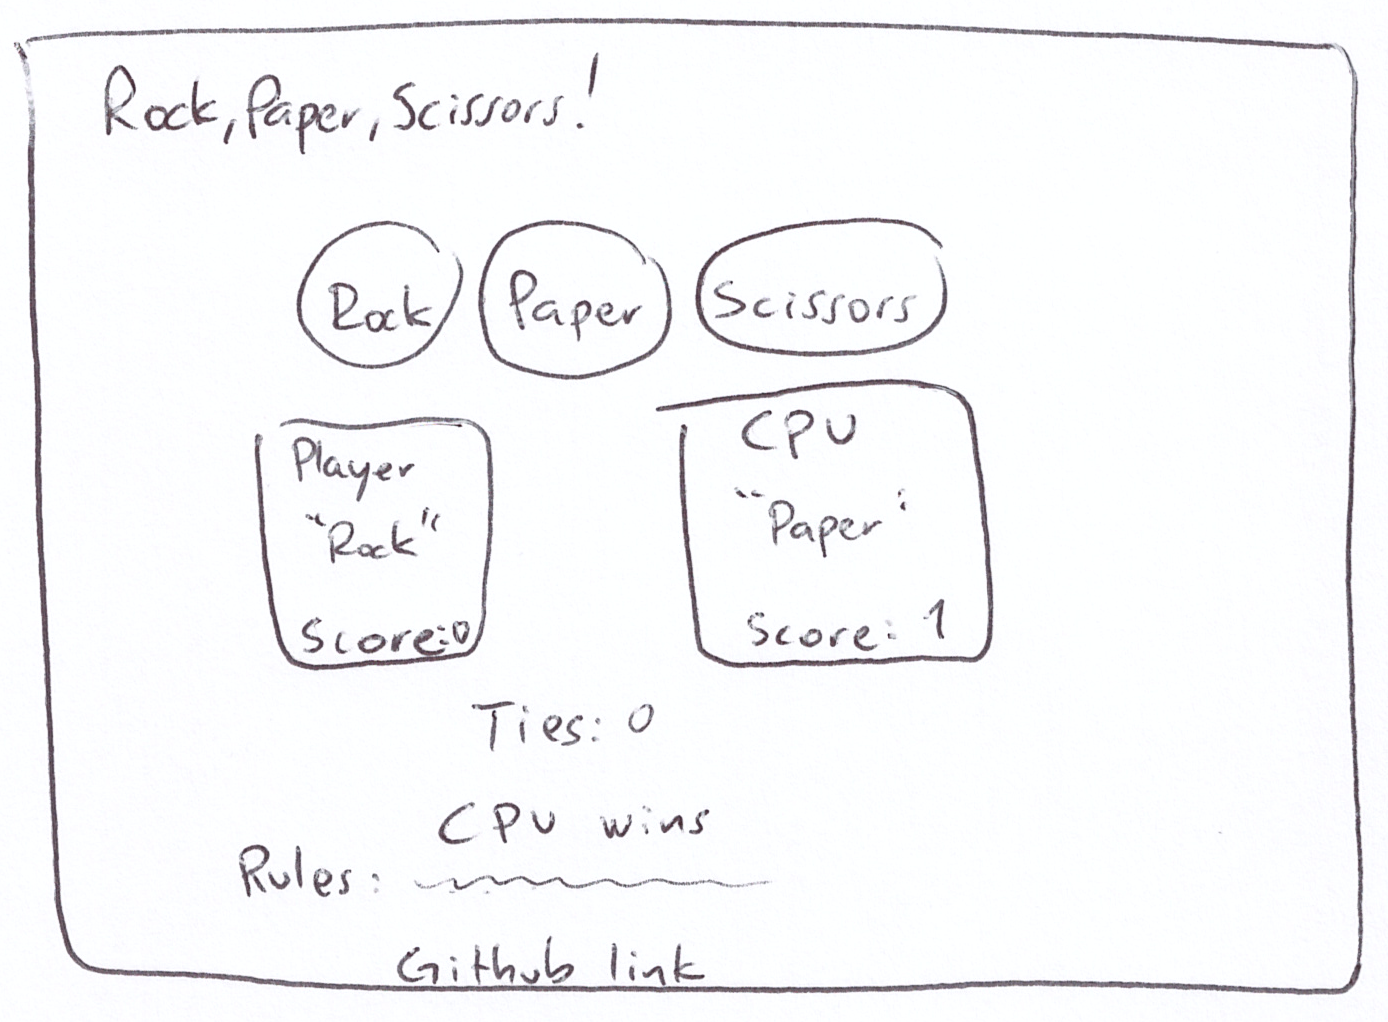 Rock, Paper, Scissors!
Rock Paper Scissors
Player
"Rock"
Score: 0
CPU
"Paper"
Score: 1
Ties: 0
CPU wins
Rules:
Github link